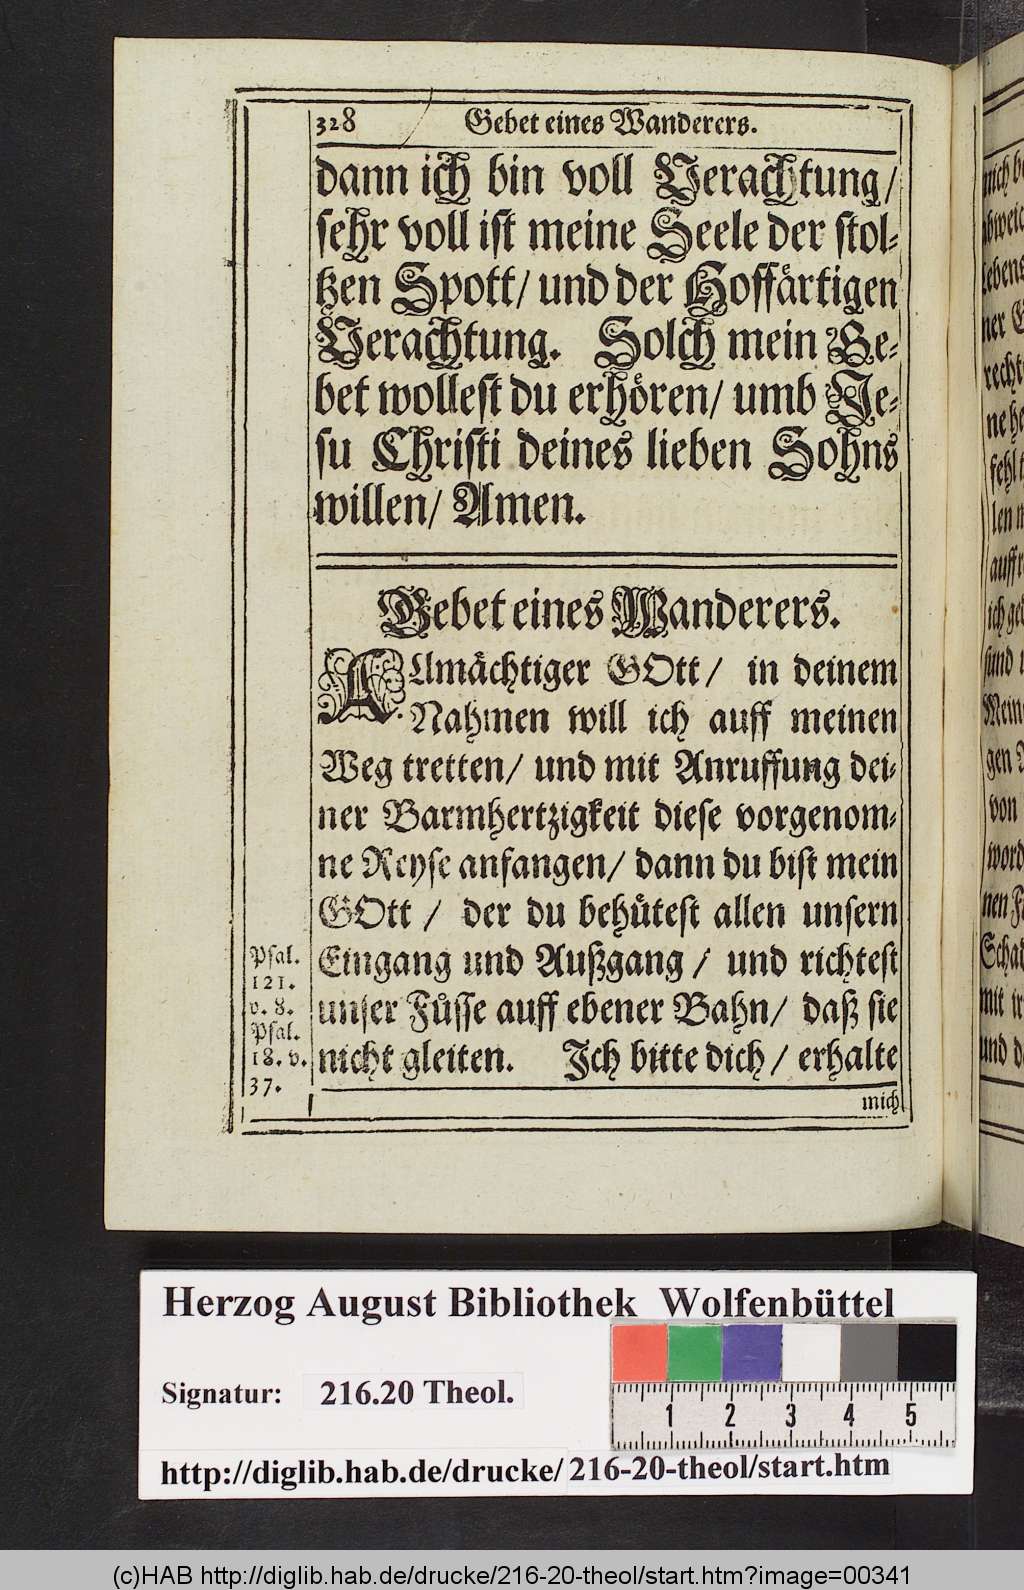 328 Gebet eines Wanderers.
dann ich bin voll Verachtung/
sehr voll ist meine Seele der stol-
tzen Spott/ und der Hoffärtigen
Verachtung. Solch mein Ge-
bet wollest du erhören/ umb Je-
su Christi deines lieben Sohns
willen/ Amen.
Gebet eines Wanderers.
Allmächtiger GOtt/ in deinem
Nahmen will ich auff meinen
Weg tretten/ und mit Anruffung dei-
ner Barmhertzigkeit diese vorgenom-
ne Reyse anfangen/ dann du bist mein
GOtt / der du behütest allen unsern
Eingang und Außgang / und richtest
unser Füsse auff ebener Bahn/ daß sie
nicht gleiten. Ich bitte dich / erhalte
mich
Psal.
121.
v. 8.
Psal.
18. v.
37.
Herzog August Bibliothek Wolfenbüttel
Signatur: 216.20 Theol.
1 2 3 4 5
http://diglib.hab.de/drucke/216-20-theol/start.htm
(c)HAB http://diglib.hab.de/drucke/216-20-theol/start.htm?image=00341